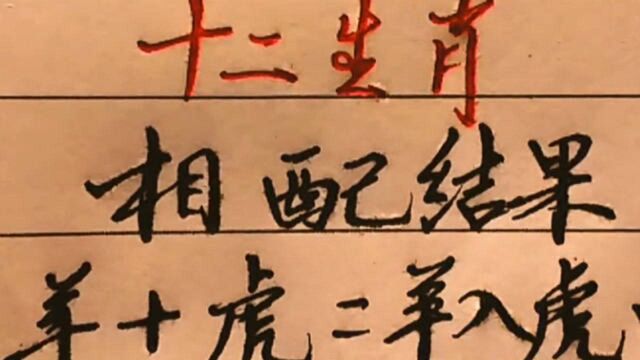 十二生肖
相配结果
羊十虎二羊入虎